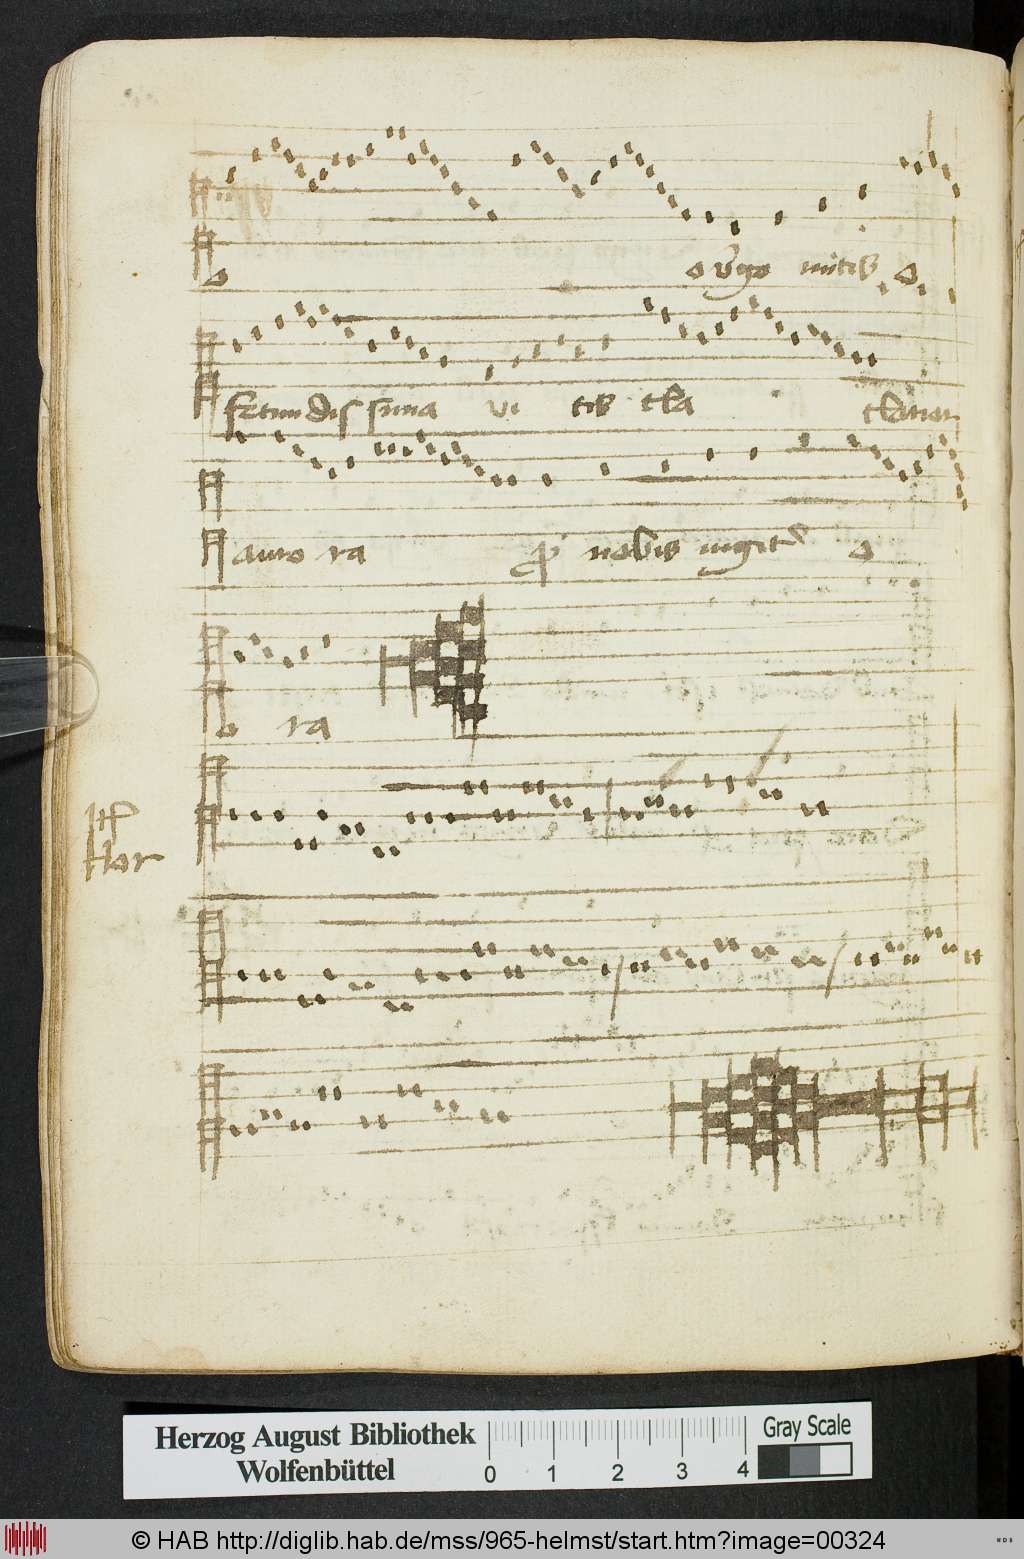 o o v̄go mitis o
fecundissima vitis cla clarior
auro ra p nobis iugit̄ o
o ra
Herzog August Bibliothek
Wolfenbüttel
0 1 2 3 4
Gray Scale
© HAB http://diglib.hab.de/mss/965-helmst/start.htm?image=00324